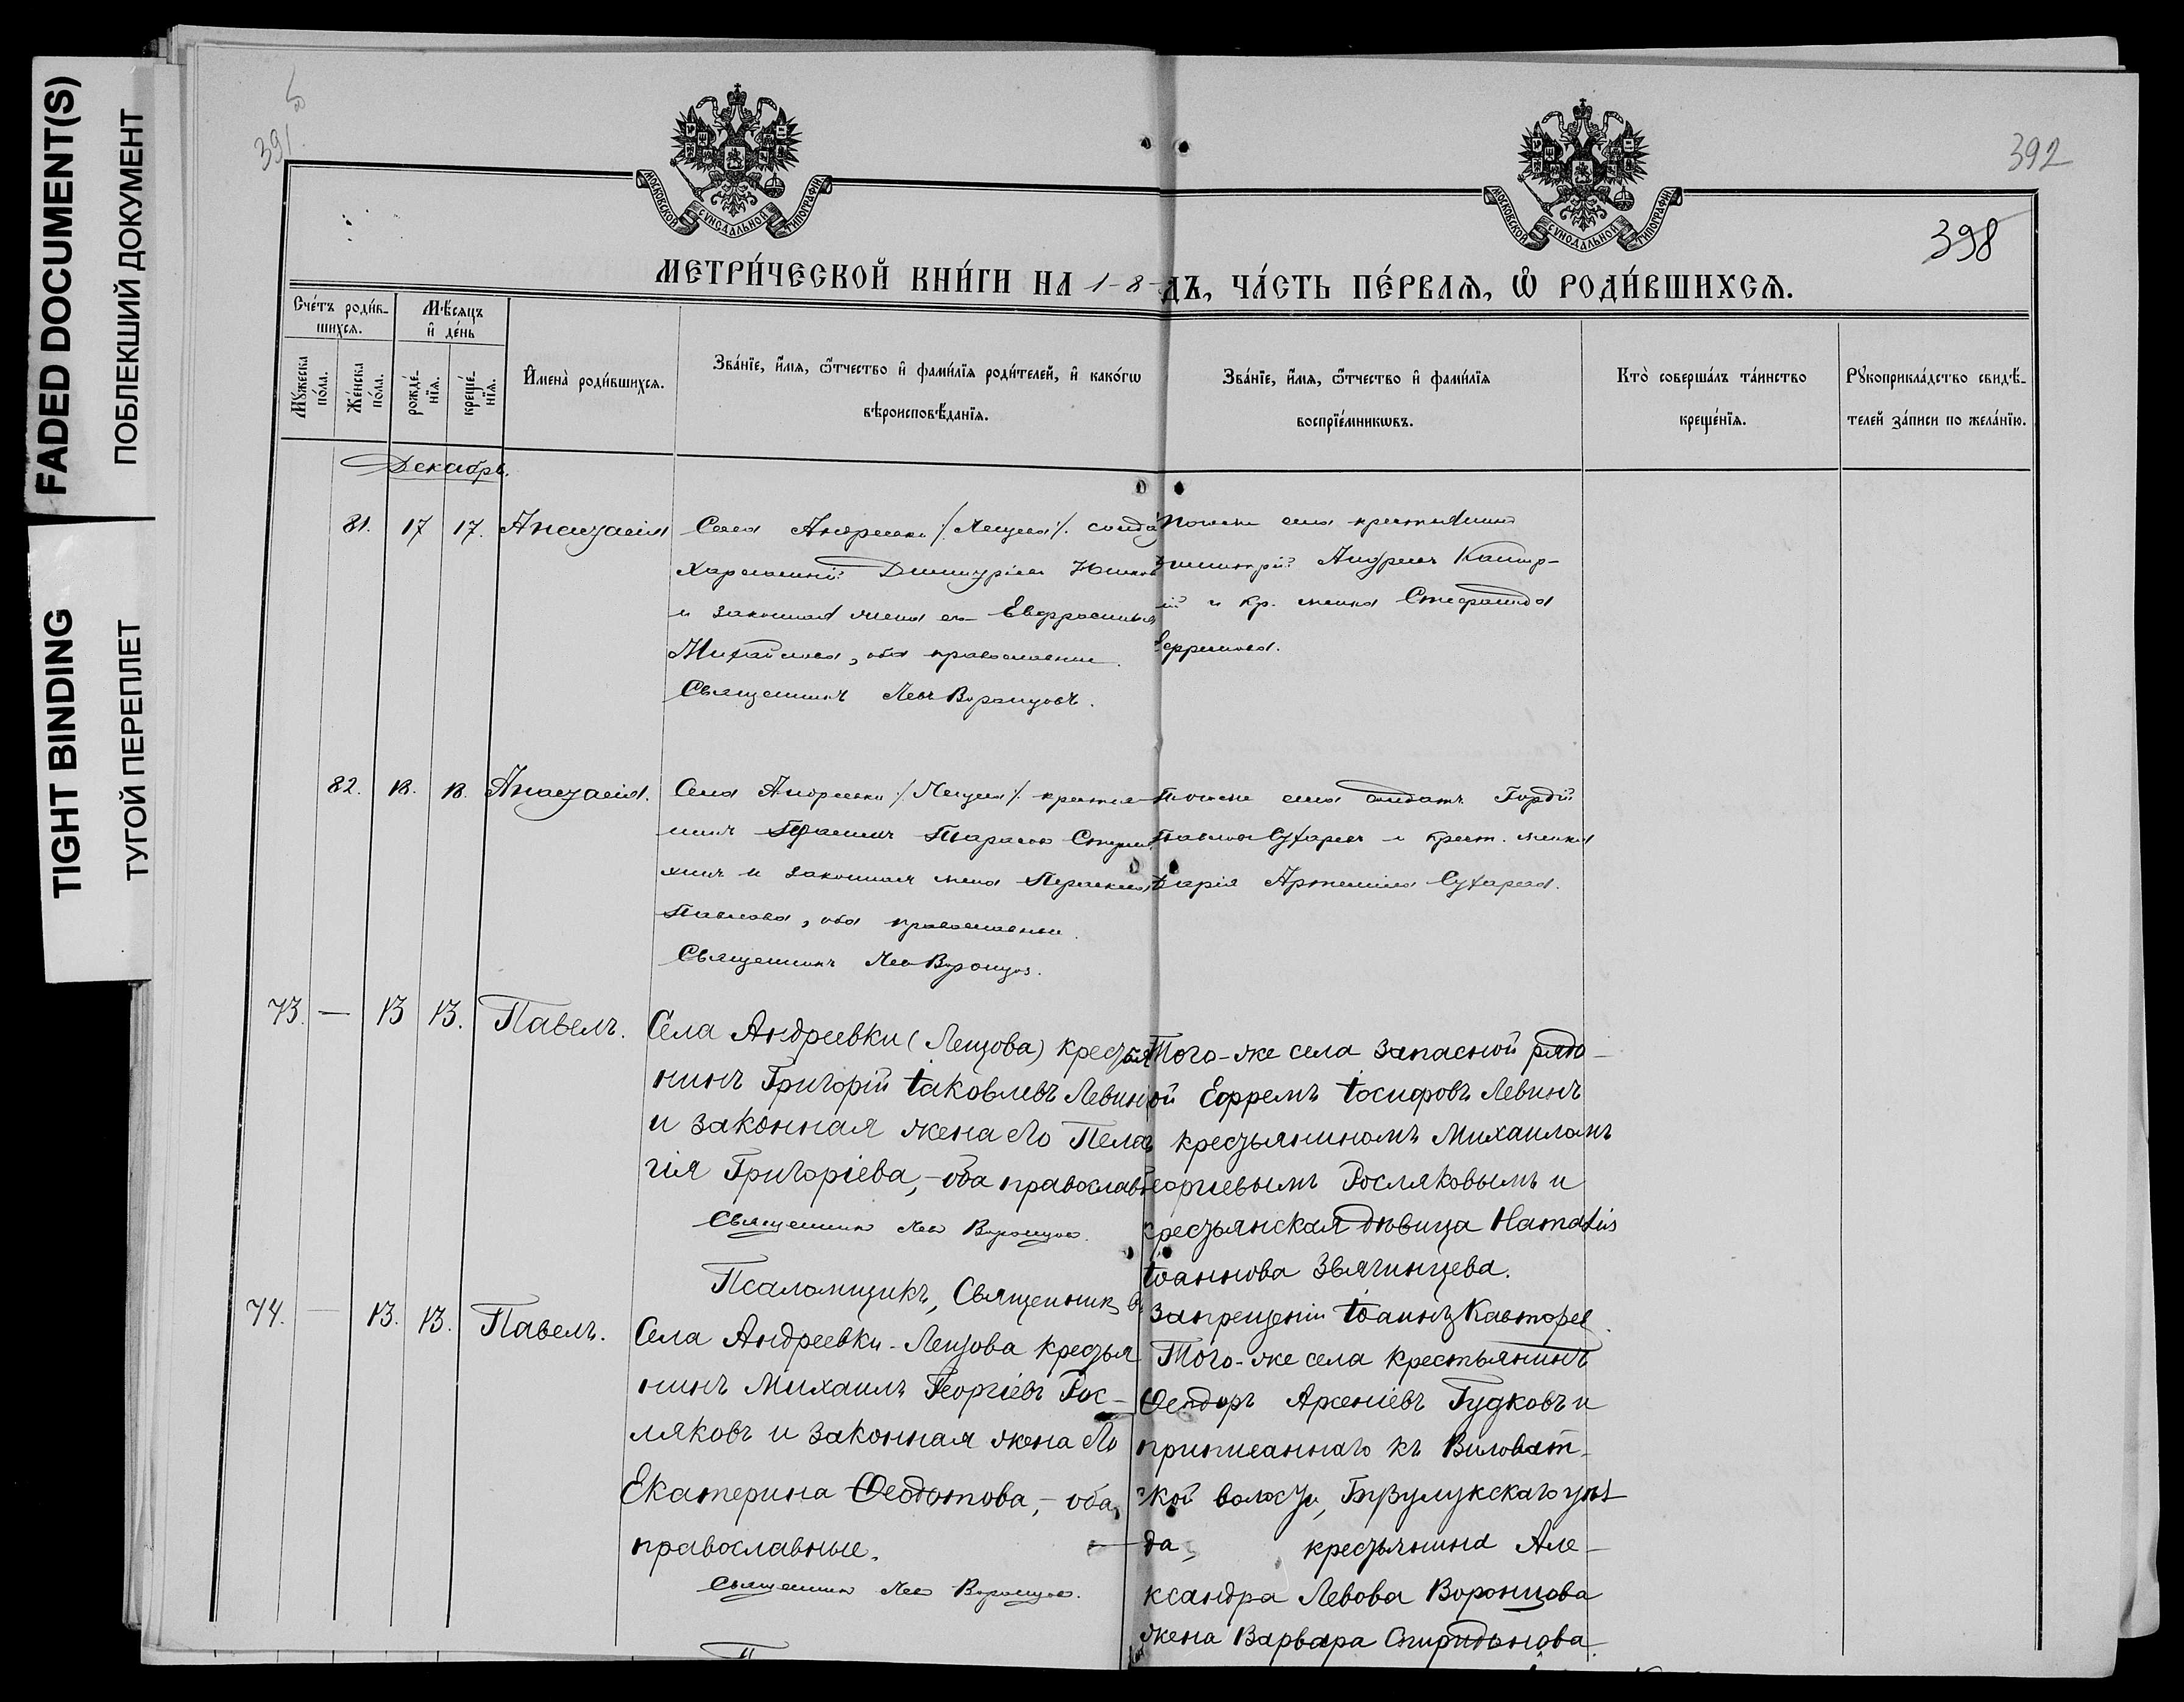 FADED DOCUMENT(S)
ПОБЛЕКШИЙ ДОКУМЕНТ
TIGHT BINDING
ТУГОЙ ПЕРЕПЛЕТ
391.
392
398
МОСКОВСКОЙ СУНОДАЛЬНОЙ ТИПОГРАФІИ
МОСКОВСКОЙ СУНОДАЛЬНОЙ ТИПОГРАФІИ
МЕТРИ́ЧЕСКОЙ КНИ́ГИ НА 1-8-ДЪ, ЧА́СТЬ ПЕ́РВАѦ, Ѡ҆ РОДИ́ВШИХСѦ.
Сче́тъ роди́в-
шихсѧ.
Мѣ́сѧцъ
и҆ де́нь
Мꙋ́жеска
по́ла.
Же́нска
по́ла.
рожде́-
нїѧ.
креще́-
нїѧ.
И҆мена̀ роди́вшихсѧ.
Зва́нїе, и҆́мѧ, ѻ҆́тчество и҆ фами́лїѧ роди́телей, и҆ како́гѡ
вѣроисповѣ́данїѧ.
Зва́нїе, и҆́мѧ, ѻ҆́тчество и҆ фами́лїѧ
воспрїе́мникѡвъ.
Кто̀ соверша́лъ та́инство
креще́нїѧ.
Рꙋкоприкла́дство свидѣ́-
телей за́писи по жела́нїю.
Декабрь.
81. 17 17. Анастасія
Села Андреевки /Лещева/. солда
Димитріевъ
и законная жена его Евфросинья
Михайлова, оба православные.
Священникъ Левъ Воронцовъ.
села крестьянинъ
Андреевъ
и кр. жена Стефанида
Ефремова.
82. 18. 18. Анастасія.
Села Андреевки /Лещева/. крестья
нинъ Тарасовъ
и законная жена Параскева
Павлова, оба православные.
Священникъ Левъ Воронцовъ.
села солдатъ Гордій
Павловъ Сухаревъ и крест. жена
Дарія Артемьева Сухарева.
73. — 13 13. Павелъ.
Села Андреевки (Лещова) крестья
нинъ Григорій Іаковлевъ Левинъ
и законная жена его Пела
гія Григоріева,- оба православ
Священникъ Левъ Воронцовъ.
Того-же села запасной рядо-
вой Ефремъ Іосифовъ Левинъ
съ крестьяниномъ Михаиломъ
Георгіевымъ Росляковымъ и
крестьянская дѣвица Наталія
Іоаннова Звягинцева.
Псаломщикъ, Священникъ въ запрещеніи Іоаннъ Кавторев
74. — 13. 13. Павелъ.
Села Андреевки-Лещова крестья
нинъ Михаилъ Георгіевъ Рос-
ляковъ и законная жена его
Екатерина Ѳеодотова,- оба
православные.
Священникъ Левъ Воронцовъ.
Того-же села крестьянинъ
Ѳеодоръ Арсеніевъ Гудковъ и
приписаннаго къ Виловат-
ской волости, Бузулукскаго уѣз
да, крестьянина Але-
ксандра Левова Воронцова
жена Варвара Спиридонова.